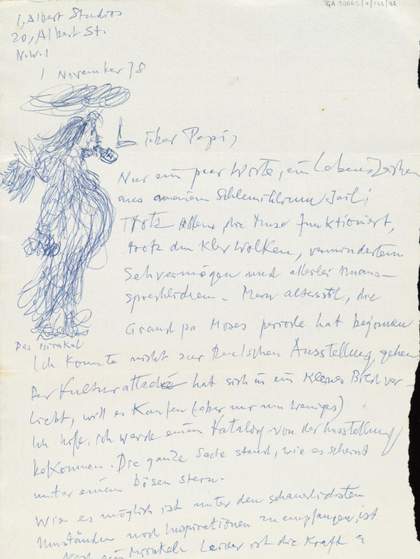 1, Albert Studios
20, Albert St.
N.W.1
1 November 78
Lieber Papi,
Nur ein paar Worte, ein Lebenszeichen
aus meinem
Trotz allem die Muse funktioniert,
trotz den Wolken, vermindertem
Sehvermögen und allerlei Unaus-
sprechlichem. Mein altersstil, die
Grand pa Moses periode hat begonnen
Das Mirakel
Ich konnte nicht zur Ausstellung gehen
Der Kulturattaché hat sich in ein kleines Bild ver-
liebt, will es kaufen (aber nur um weniges)
Ich hoffe ich werde einen Katalog von der Ausstellung
bekommen. Die ganze Sache stand, wie es scheint
unter einem bösen stern.
Wie es möglich ist unter den schauerlichsten
Umständen noch Inspirationen zu empfangen ist
ein Mirakel. Leider ist die Kraft